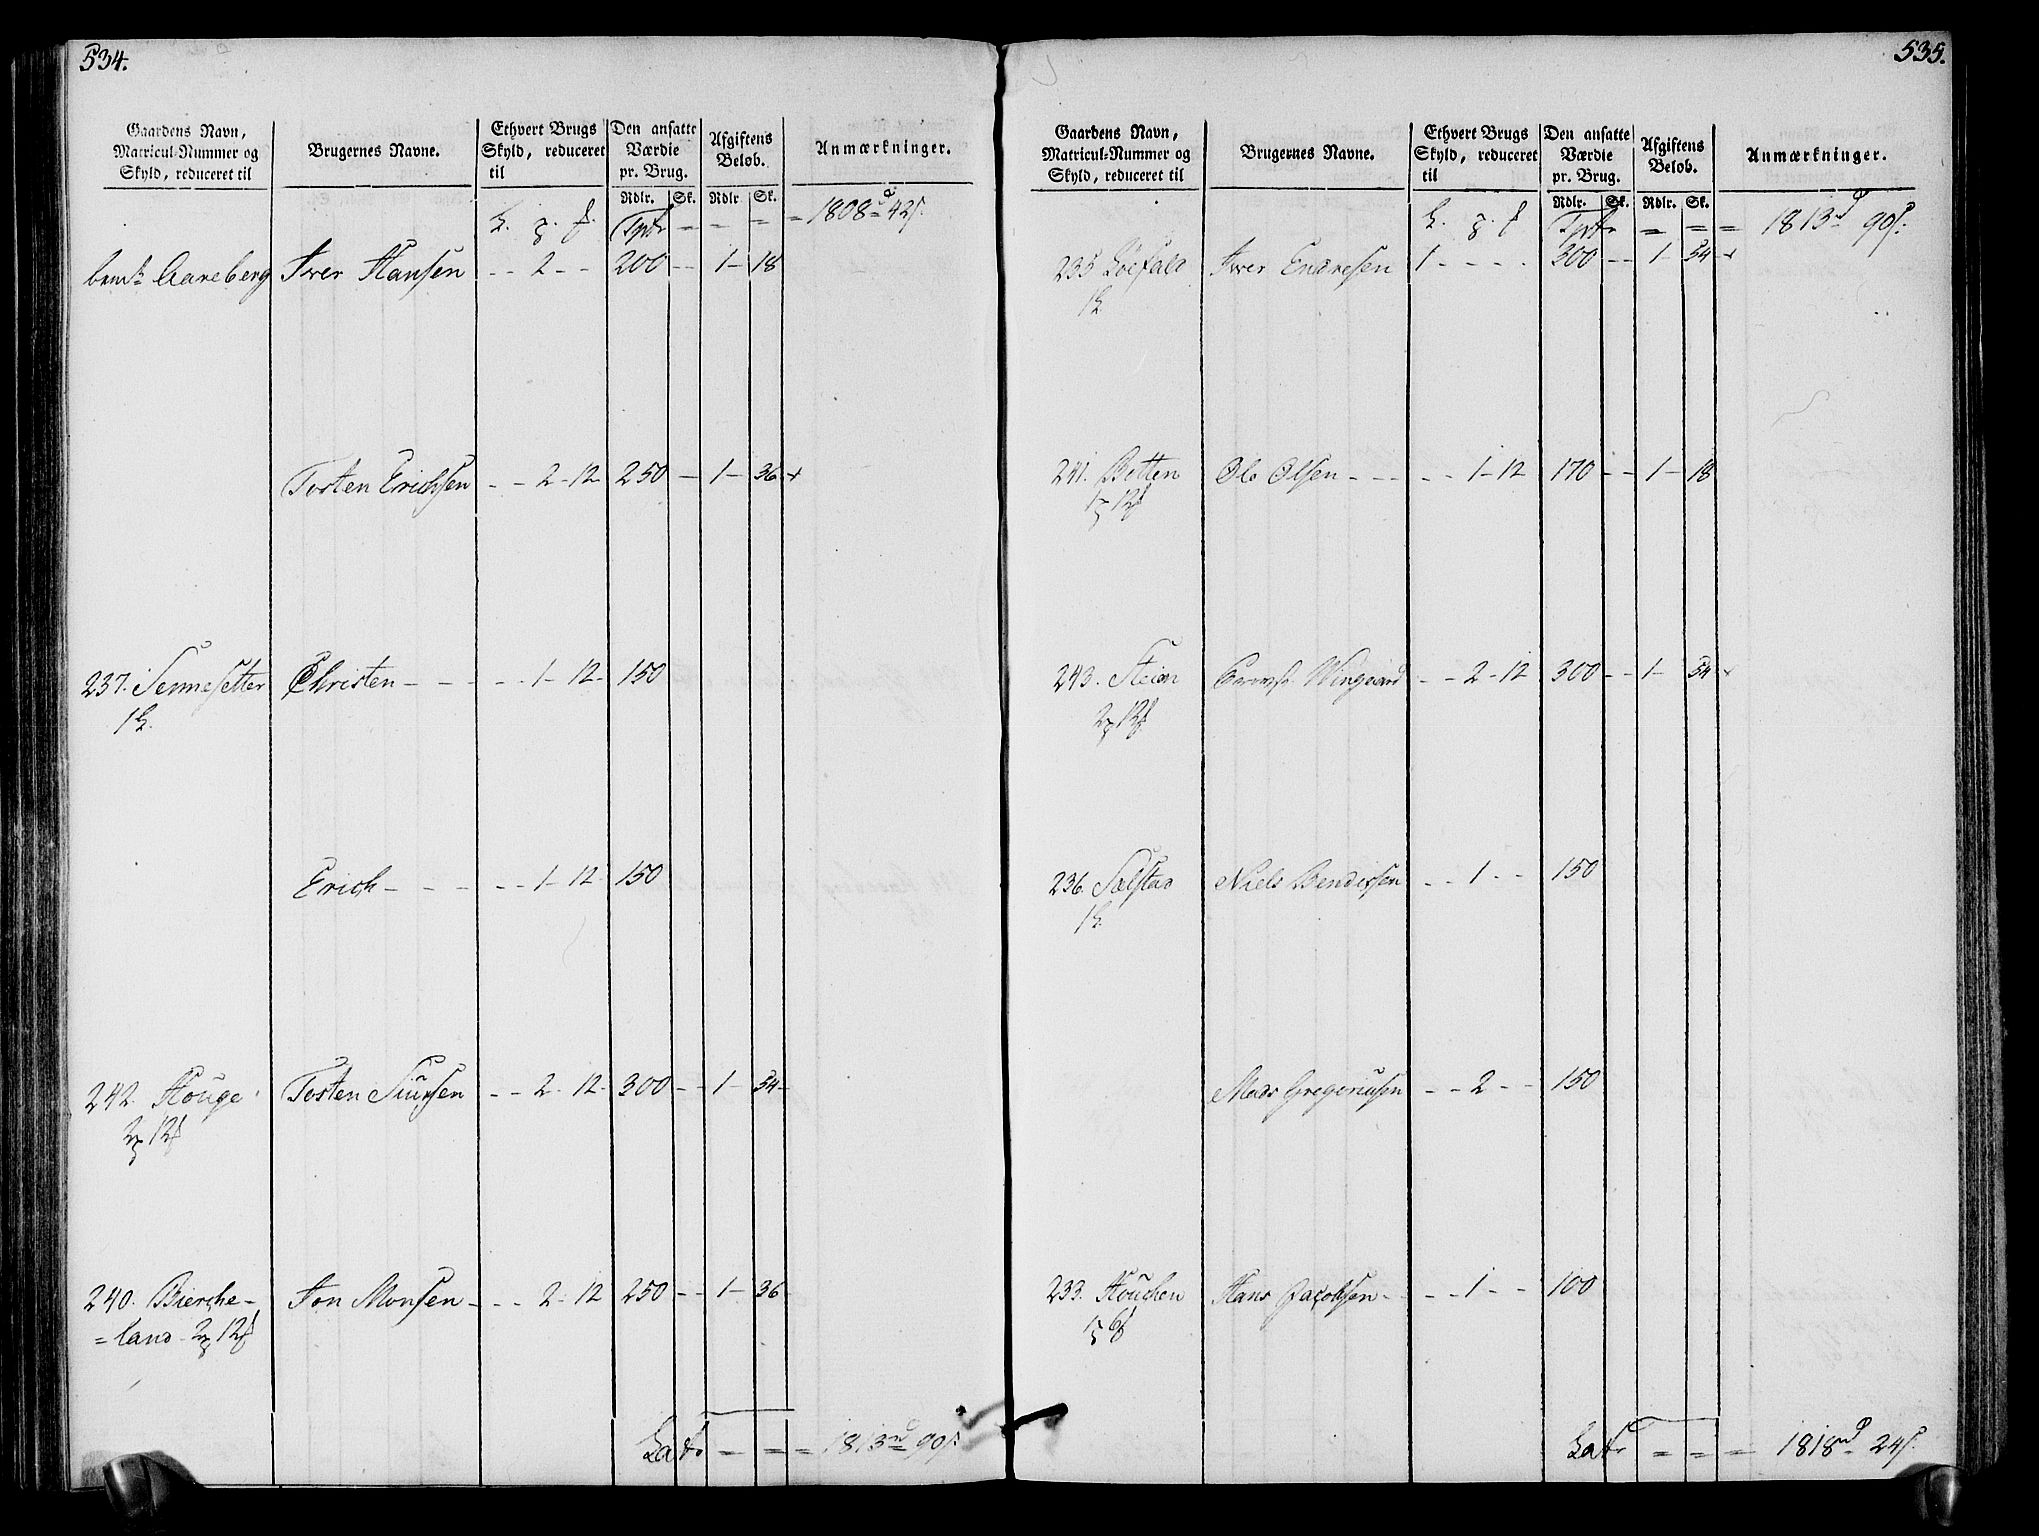 534.
Gaardens Navn, Matricul-Nummer og Skyld, reduceret til
Brugernes Navne.
Ethvert Brugs Skyld, reduceret til
Den ansatte Værdie pr. Brug.
Afgiftens Beløb.
Anmærkninger.
Rdlr. Sk. Rdlr. Sk.
Tpt = = = = 1808 d 42 s.
Aareberg Iver Hansen - - 2 - - 200 - - 1 - 18
Tosten Erichsen - - 2 - 12 250 - 1 - 36 +
237. Sennesetter Christen - - - - - 1 - 12 - 150
Erich - - - - - - 1 - 12 - 150
242. Houge Tosten Siursen - - 2 - 12 - 300 - - 1 - 54 -
240. Bierche- Jon Monsen - - - 2 - 12 250 - - 1 - 36
= land
Latr = = = 1813 d 90 s.
535.
Gaardens Navn, Matricul-Nummer og Skyld, reduceret til
Brugernes Navne.
Ethvert Brugs Skyld, reduceret til
Den ansatte Værdie pr. Brug.
Afgiftens Beløb.
Anmærkninger.
Rdlr. Sk. Rdlr. Sk.
Tptr = = = 1813 d 90 s.
235 Løefald Iver Endresen 1 - - - - 300 - - 1 - 54 +
241. Botten Ole Olsen - - - - - 1 - 12 170 - - 1 - 18
243. Steien Wingaard - - 2 - 12 300 - - 1 - 54
236. Sælstad Niels Bendixsen - - 1 - - 150
Mads Gregeriusen - - 2 - - 150
233. Houchen Hans Jacobsen - - - 1 - - 100
Latr = = = 1818 d 24 s.